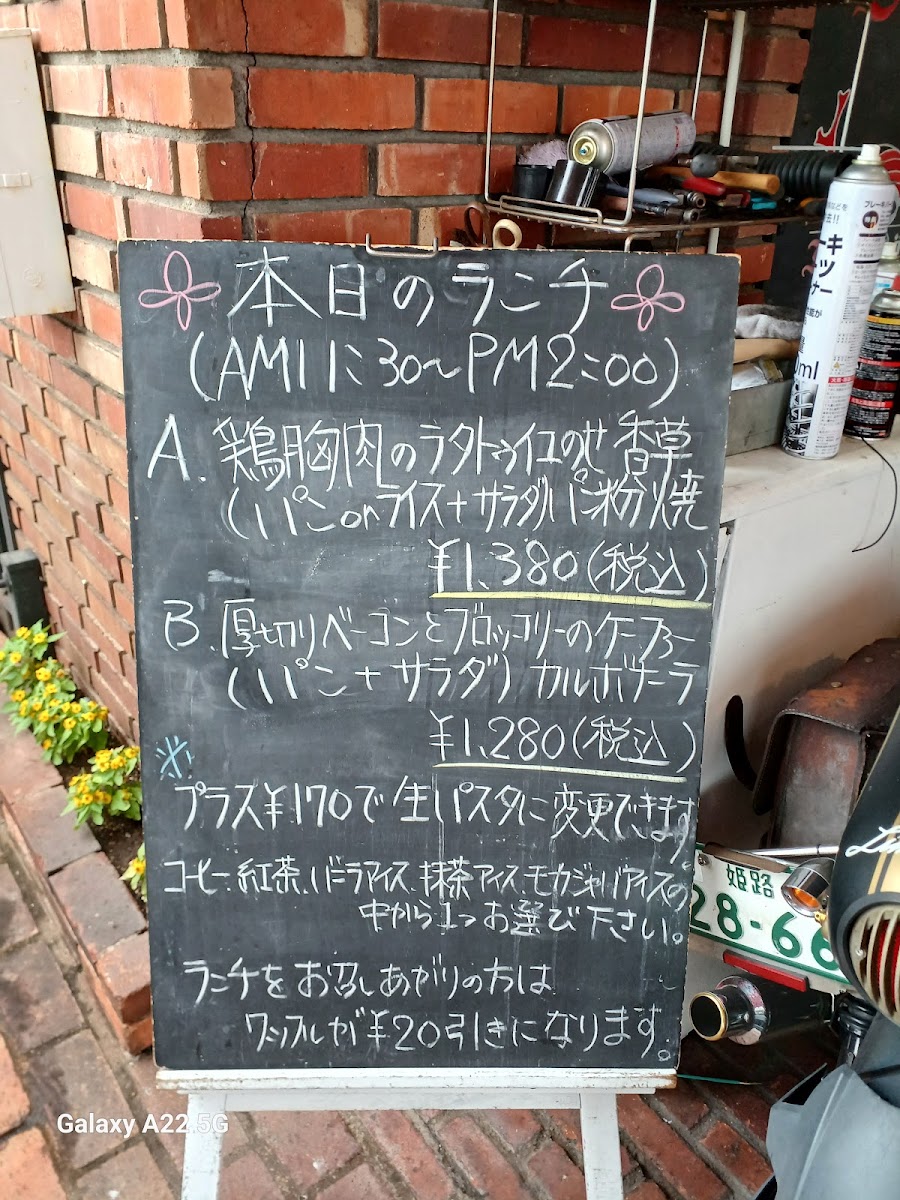 本日のランチ
(AM11:30〜PM2:00)
A. 鶏胸肉のラタトゥイユのせ 香草
(パン or ライス+サラダ) パン粉焼
¥1,380(税込)
B. 厚切りベーコンとブロッコリーの
(パン+サラダ) カルボナーラ
¥1,280(税込)
※
プラス¥170で生パスタに変更できます。
コーヒー、紅茶、バニラアイス、抹茶アイス、モカジャバアイスの
中から1つお選び下さい。
ランチをお召しあがりの方は
ワッフルが¥20引きになります。
姫路
28-66
Galaxy A22 5G